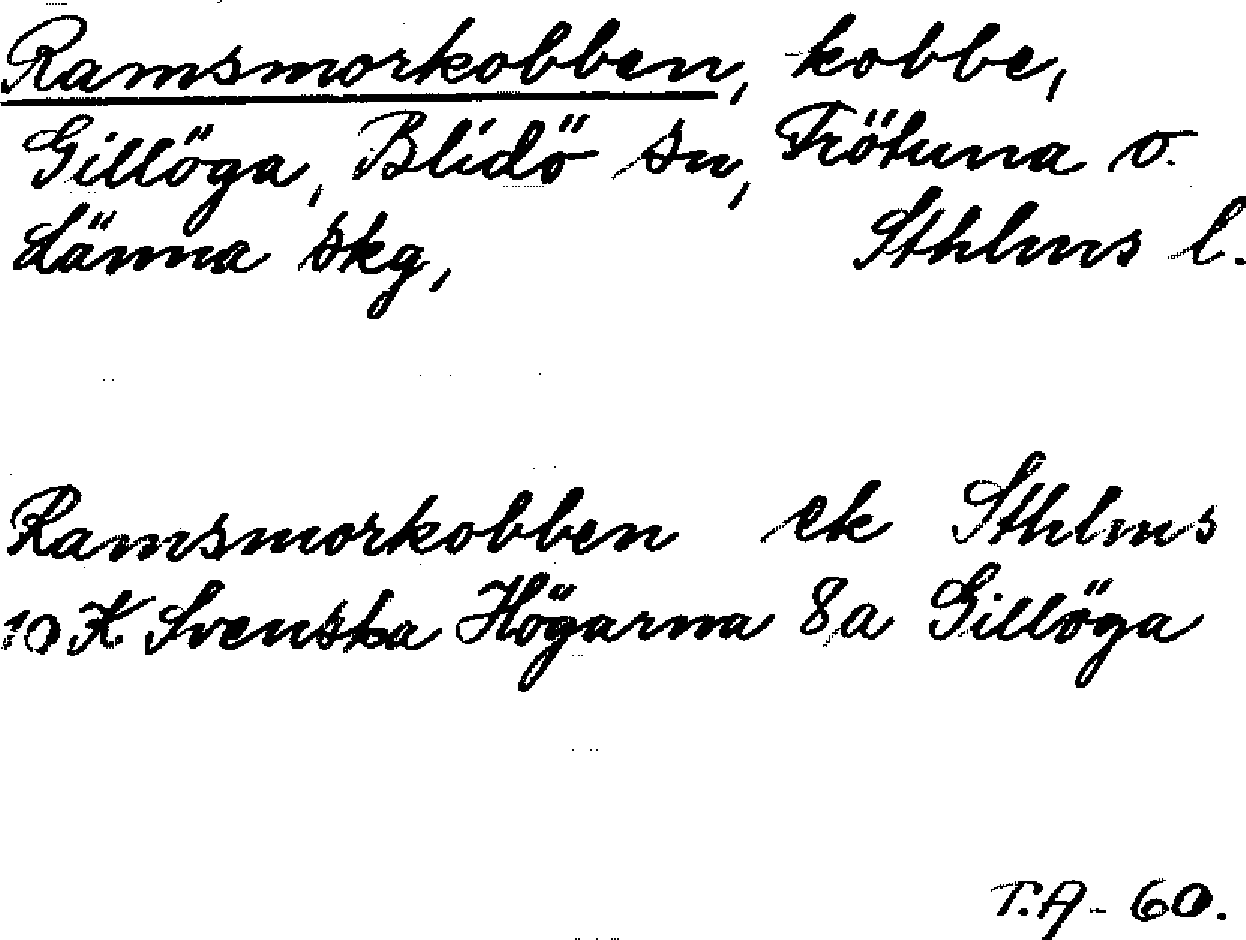 Ramsmorkobben, kobbe,
Gillöga, Blidö sn, Frötuna o.
Länna skg, Sthlms l.
Ramsmorkobben ek Sthlms
10 K Svenska Högarna 8a Gillöga
T.A - 60.